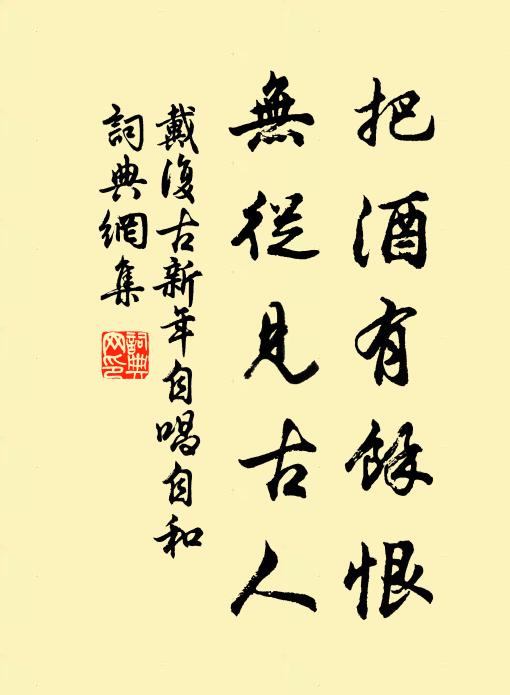 把酒有餘恨
無從見古人
戴復古新年自唱自和
詞典網集
詞典网印